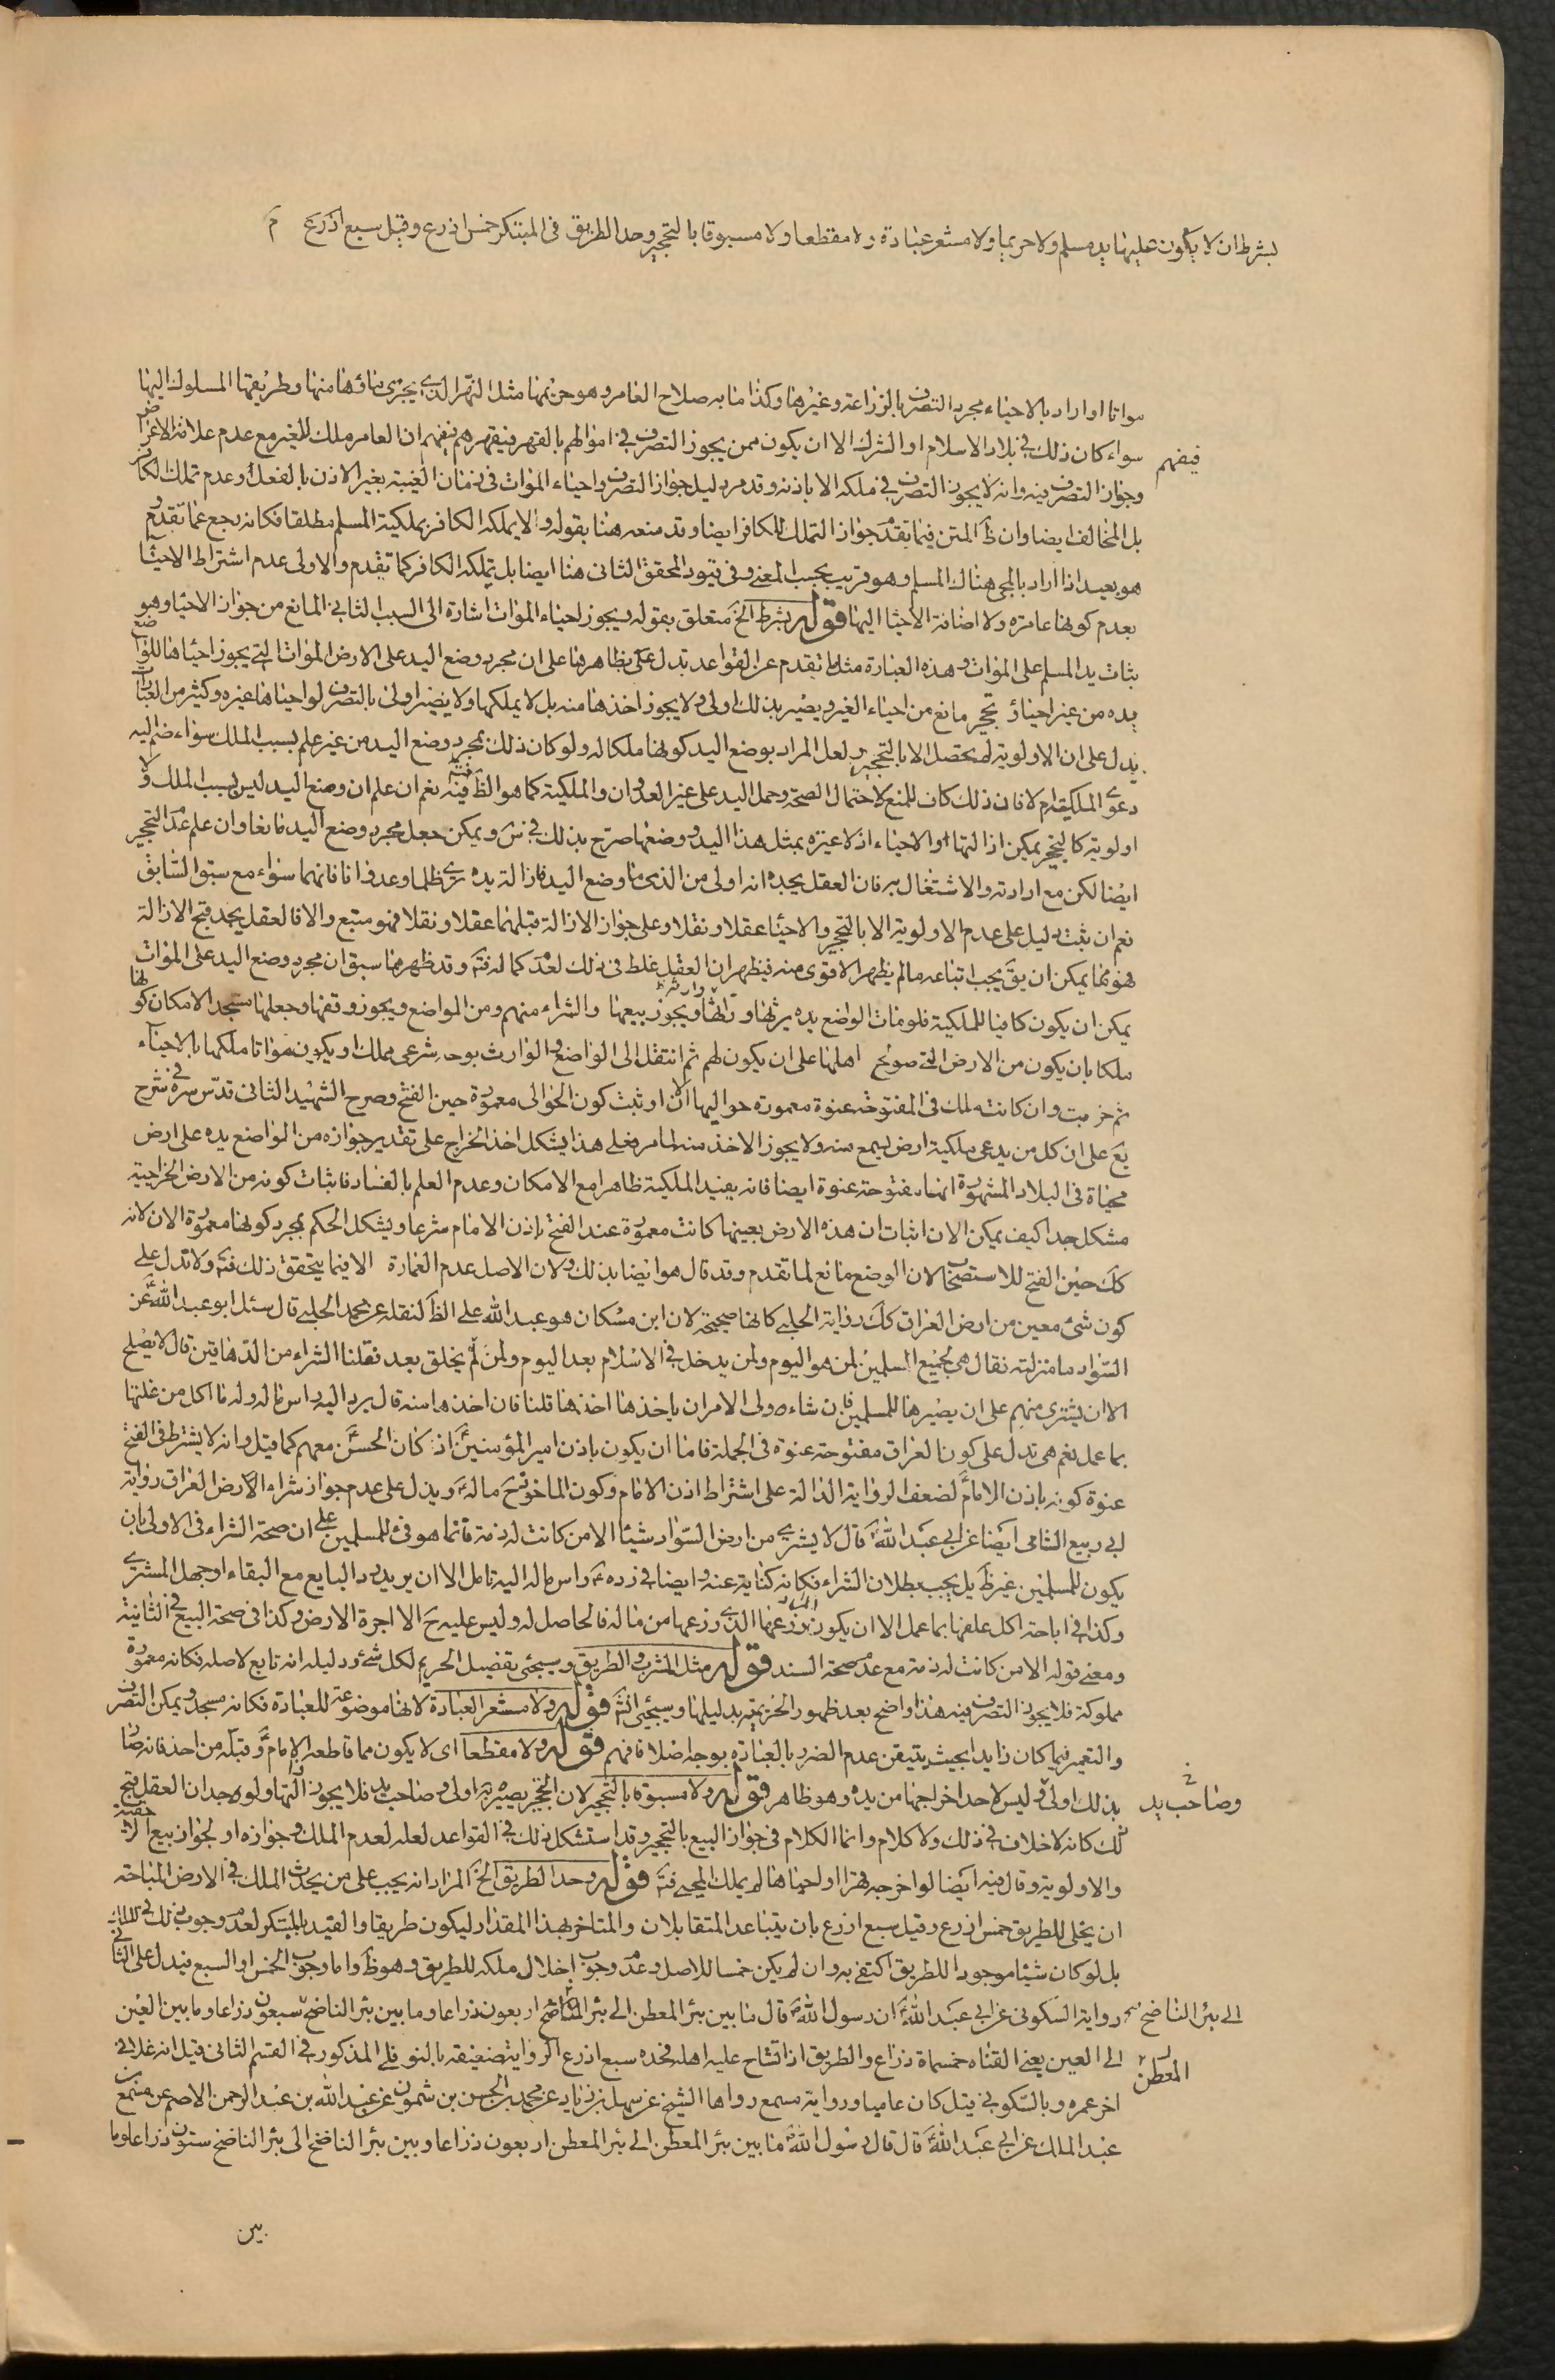 بشرط ان لا يكون عليها يد مسلم ولا حريما ولا مشعر عبادة ولا مقطعا ولا مسبوقا بالتحجير وحد الطريق في المبتكر خمس اذرع وقيل سبع اذرع م
مواتا او اراد بالاحياء مجرد التصرف بالزراعة وغيرها وكذا ما به صلاح العامر وهو حريمها مثل النهر الذي يجرى ماؤها منها وطريقها المسلوك اليها
سواء كان ذلك في بلاد الاسلام او الشرك الا ان يكون ممن يجوز التصرف في اموالهم بالقهر فيقهرهم يفهم ان العامر ملك للغير مع عدم علامة الاعراض
فيفهم
وجواز التصرف فيه وانه لا يجوز التصرف في ملكه الا باذنه وقد مر دليل جواز التصرف واحياء الموات في زمان الغيبة بغير الاذن بالفعل وعدم تملك الكافر
بل المخالف ايضا وان ظ المتن فيما تقدم جواز التملك للكافر ايضا وقد منعه هنا بقوله ولا يملكه الكافر بملكية المسلم مطلقا فكانه رجع عما تقدم و
هو بعيد اذا اراد بالمحي هناك المسلم وهو قريب بحسب المعنى وفي قيود المحقق الثاني هنا ايضا بل يملكه الكافر كما تقدم والاولى عدم اشتراط الاحيا
بعدم كونها عامرة ولا اضافة الاحيا اليها قوله بشرط الخ متعلق بقوله ويجوز احياء الموات اشارة الى السبب الثاني المانع من جواز الاحيا وهو
بثات يد المسلم على الموات وهذه العبارة مثل ما تقدم عن القواعد تدل على بظاهرها على ان مجرد وضع اليد على الارض الموات التي يجوز احياها للواضع
يده من غير احياؤ تحجير مانع من احياء الغير ويصير بذلك اولى ولا يجوز اخذها منه بل لا يملكها ولا يصير اولى بالتصرف لو احياها غيره وكثير من العبارات
يدل على ان الاولوية لم يحصل الا بالتحجير ولعل المراد بوضع اليد كونها ملكا له ولو كان ذلك بمجرد وضع اليد من غير علم بسبب الملك سواء ضم اليه
دعوى الملكية ام لا فان ذلك كاف للمنع لاحتمال الصحة وحمل اليد على غير العدوان والملكية كما هو الظ فيه نعم ان علم ان وضع اليد ليس بسبب الملك ولا
اولوية كالتحجير يمكن ازالتها او الاحياء اذ لا عبرة بمثل هذا اليد ووضعها صرح بذلك في س ويمكن جعل مجرد وضع اليد مانعا وان علم عدم التحجير
ايضا لكن مع ارادته والاشتغال به فان العقل يجده انه اولى من الذي ما وضع اليد فازالة يده يرى ظلما وعدوانا فانهما سواء مع سبق السابق
نعم ان ثبت دليل على عدم الاولوية الا بالتحجير والاحيا عقلا ونقلا وعلى جواز الازالة قبلهما عقلا ونقلا فهو متبع والا فالعقل يجد قبح الازالة
فهو مما يمكن ان يق يجب اتباعه ما لم يظهر الاقوى منه فيظهر ان العقل غلط في ذلك لعدم كماله فت وقد ظهر مما سبق ان مجرد وضع اليد على الموات
يمكن ان يكون كافيا للملكية فلو مات الواضع يده يرثها وارثه ويجوز بيعها والشراء منهم ومن المواضع ويجوز وقفها وجعلها مسجد الامكان كونها
ملكا بان يكون من الارض التي صولح اهلها على ان يكون لهم ثم انتقل الى الواضع والوارث بوجه شرعي مملك او يكون مواتا ملكها بالاحياء
ثم خربت وان كانت تلك في المفتوحة عنوة معمورة حواليها الان او ثبت كون الحوالي معمورة حين الفتح وصرح الشهيد الثاني قدس سره في شرح
يع على ان كل من يدعى ملكية ارض يسمع منه ولا يجوز الاخذ منه لما مر فعلى هذا يشكل اخذ الخراج على تقدير جوازه من الواضع يده على ارض
محياة في البلاد المشهورة انها مفتوحة عنوة ايضا فانه يفيد الملكية ظاهرا مع الامكان وعدم العلم بالفساد فاثبات كونه من الارض الخراجية
مشكل جدا كيف يمكن الان اثبات ان هذه الارض بعينها كانت معمورة عند الفتح باذن الامام شرعا ويشكل الحكم بمجرد كونها معمورة الان لانه
كك حين الفتح للاستصحاب لان الوضع مانع لما تقدم وقد قال هو ايضا بذلك ولان الاصل عدم العمارة الا فيما يتحقق ذلك فت ولا تدل على
كون شئ معين من ارض العراق كك رواية الحلبي كانها صحيحة لان ابن مسكان هو عبد الله على الظ لنقله عن محمد الحلبي قال سئل ابو عبد الله ع عن
السواد ما منزلته فقال هي لجميع المسلمين لمن هو اليوم ولمن يدخل في الاسلام بعد اليوم ولمن لم يخلق بعد فقلنا الشراء من الدهاقين قال لا يصلح
الا ان يشترى منهم على ان يصيرها للمسلمين فان شاء ولى الامر ان ياخذها اخذها قلنا فان اخذها منه قال يرد اليه راس ماله وله ما اكل من غلتها
بما عمل نعم هي تدل على كون العراق مفتوحة عنوة في الجملة فاما ان يكون باذن امير المؤمنين ع اذ كان الحسن ع معهم كما قيل وانه لا يشترط في الفتح
عنوة كونه باذن الامام ع لضعف الرواية الدالة على اشتراط اذن الامام وكون الماخوذ ح ماله ع ويدل على عدم جواز شراء الارض العراق رواية
ابي ربيع الشامي ايضا عن ابي عبد الله ع قال لا يشترى من ارض السواد شيئا الا من كانت له ذمة فانما هو فئ للمسلمين على ان صحة الشراء في الاولى بان
يكون للمسلمين غير ظ بل يجب بطلان الشراء فكانه كناية عنه وايضا في رده ع راس ماله اليه تامل الا ان يريد رد البايع مع البقاء او جهل المشترى
وكذا في اباحة اكل علفها بما عمل الا ان يكون زرعها الذي زرعها من ماله فالحاصل له وليس عليه ح الا اجرة الارض وكذا في صحة البيع في الثانية
ومعنى قوله الا من كانت له ذمة مع عدم صحة السند قوله مثل المشرب والطريق وسيجئ تفصيل الحريم لكل شئ ودليله انه تابع لاصله فكانه معمورة
مملوكة فلا يجوز التصرف فيه هذا واضح بعد ظهور الحريمية بدليلها وسيجئ انش قوله ولا مشعر العبادة لانها موضوعة للعبادة فكانه مسجد ويمكن التصرف
والتعمير فيما كان زايدا بحيث يتيقن عدم الضرر بالعبادة بوجه اصلا فافهم قوله ولا مقطعا اى لا يكون مما قاطعه الامام ع وقبله من احد فانه صار
بذلك اولى و ليس لاحد اخراجها من يده وهو ظاهر قوله ولا مسبوقة بالتحجير لان التحجير يصيره اولى و صاحب يد فلا يجوز ازالتها ولوجدان العقل قبح
وصاحب يد
ذلك كانه لا خلاف في ذلك ولا كلام وانما الكلام في جواز البيع بالتحجير وقد استشكل ذلك في القواعد لعله لعدم الملك وجوازه او لجواز بيع الاحقية
والاولوية وقال فيه ايضا لو اخرجه قهرا او احياها لم يملك المحيى فت قوله وحد الطريق الخ المراد انه يجب على من يحدث الملك في الارض المباحة
ان يخلى للطريق خمس اذرع وقيل سبع اذرع بان يتباعد المتقابلان والمتاخر بهذا المقدار ليكون طريقا والقيد بالمبتكر لعدم وجوب ذلك في
بل لو كان شيئا موجودا للطريق اكتفى به وان لم يكن خمسا للاصل وعدم وجوب اخلال ملكه للطريق وهو ظ واما وجوب الخمس او السبع فيدل على الثاني
رواية السكوني عن ابي عبد الله ع ان رسول الله ص قال ما بين بئر المعطن الى بئر اربعون ذراعا وما بين بئر الناضح سبعون ذراعا وما بين العين
الى بئر الناضح
الى العين يعنى القناة خمسماة ذراع والطريق اذا تشاح عليه اهله فحده سبع اذرع الرواية ضعيفة بالنوفلي المذكور في القسم الثاني قيل انه غلا في
المعطن
اخر عمره وبالسكوني قيل كان عاميا ورواية مسمع رواها الشيخ عن سهل بن زياد عن محمد بن الحسن بن شمون عن عبد الله بن عبد الرحمن الاصم عن مسمع بن
عبد الملك عن ابي عبد الله ع قال قال رسول الله ص ما بين بئر المعطن الى بئر المعطن اربعون ذراعا وبين بئر الناضح الى بئر الناضح ستون ذراعا وما
بين